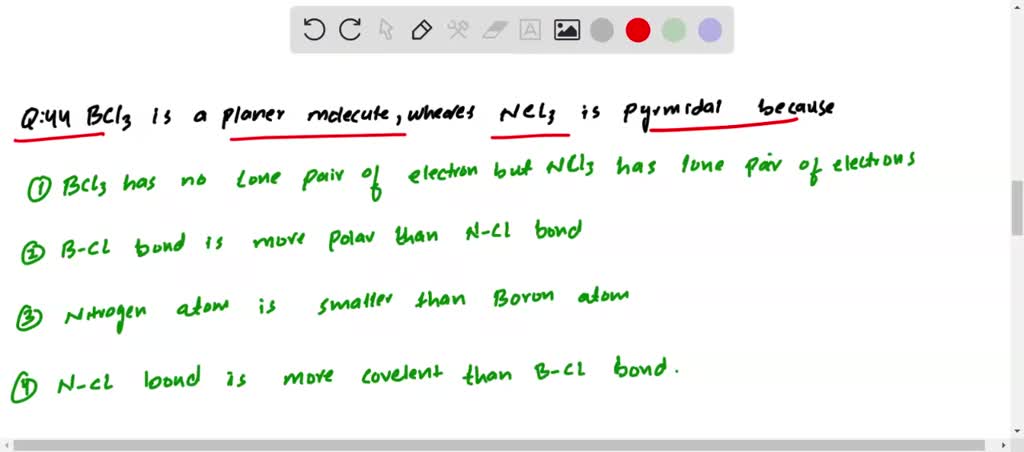 Q:44 BCl3 is a planer molecute, wheares NCl3 is pyrmidal because
① BCl3 has no lone pair of electron but NCl3 has lone pair of electrons
② B-Cl bond is more polar than N-Cl bond
③ Nitrogen atom is smaller than Boron atom
④ N-Cl bond is more covelent than B-Cl bond.